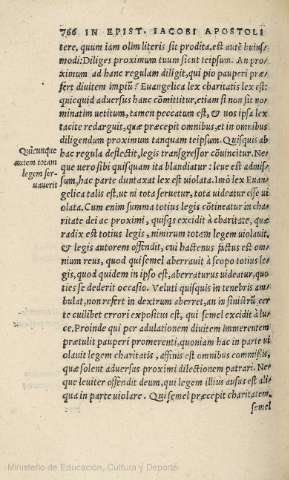 766 IN EPIST. IACOBI APOSTOLI
tere, quum iam olim literis sit prodita, est autē huius-
modi: Diliges proximum tuum sicut teipsum. An pro-
ximum ad hanc regulam diligit, qui pio pauperi præ-
fert diuitem impiū? Euangelica lex charitatis lex est:
quicquid aduersus hanc cōmittitur, etiam si non sit no-
minatim uetitum, tamen peccatum est, & uos ipsa lex
tacite redarguit, quæ præcepit omnibus, et in omnibus
diligendum proximum tanquam teipsum. Quisquis ab
hac regula deflectit, legis transgressor cōuincitur. Ne
Quicunque
autem totam
legem ser-
uauerit
que uero sibi quisquam ita blandiatur: leue est admis-
sum, hac parte duntaxat lex est uiolata. Imò lex Euan-
gelica talis est, ut ni tota seruetur, tota uideatur esse uio
lata. Cum enim summa totius legis cōtineatur in cha-
ritate dei ac proximi, quisqs excidit à charitate, quæ
radix est totius legis, nimirum totam legem uiolauit,
& legis autorem offendit, cui hactenus factus est om-
nium reus, quod quisemel aberrauit à scopo totius le-
gis, quod quidem in ipso est, aberraturus uideatur, quo-
ties se dederit occasio. Veluti quisquis in tenebris am-
bulat, non refert in dextrum aberret, an in sinistrū, cer
te cuilibet errori expositus est, qui semel excidit à lu-
ce. Proinde qui per adulationem diuitem immerentem
prætulit pauperi promerenti, quoniam hac in parte ui
olauit legem charitatis, affinis est omnibus commissis,
quæ solent aduersus proximi dilectionem patrari. Ne
que leuiter offendit deum, qui legem illius ausus est ali-
qua in parte uiolare. Qui semel præcepit charitatem,
semel
Ministerio de Educación, Cultura y Deporte